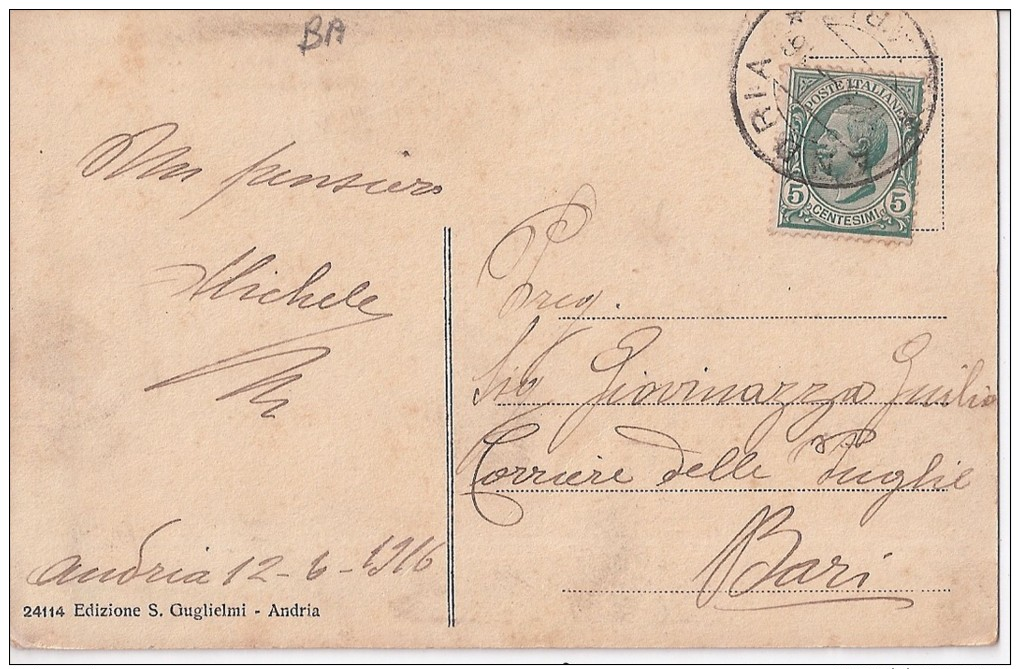 BA
Un pensiero
Michele
Andria 12-6-1916
24114 Edizione S. Guglielmi - Andria
POSTE ITALIANE
5 CENTESIMI 5
RIA
Preg.
Sig Giovinazza Guilio
Corriere delle Puglie
Bari